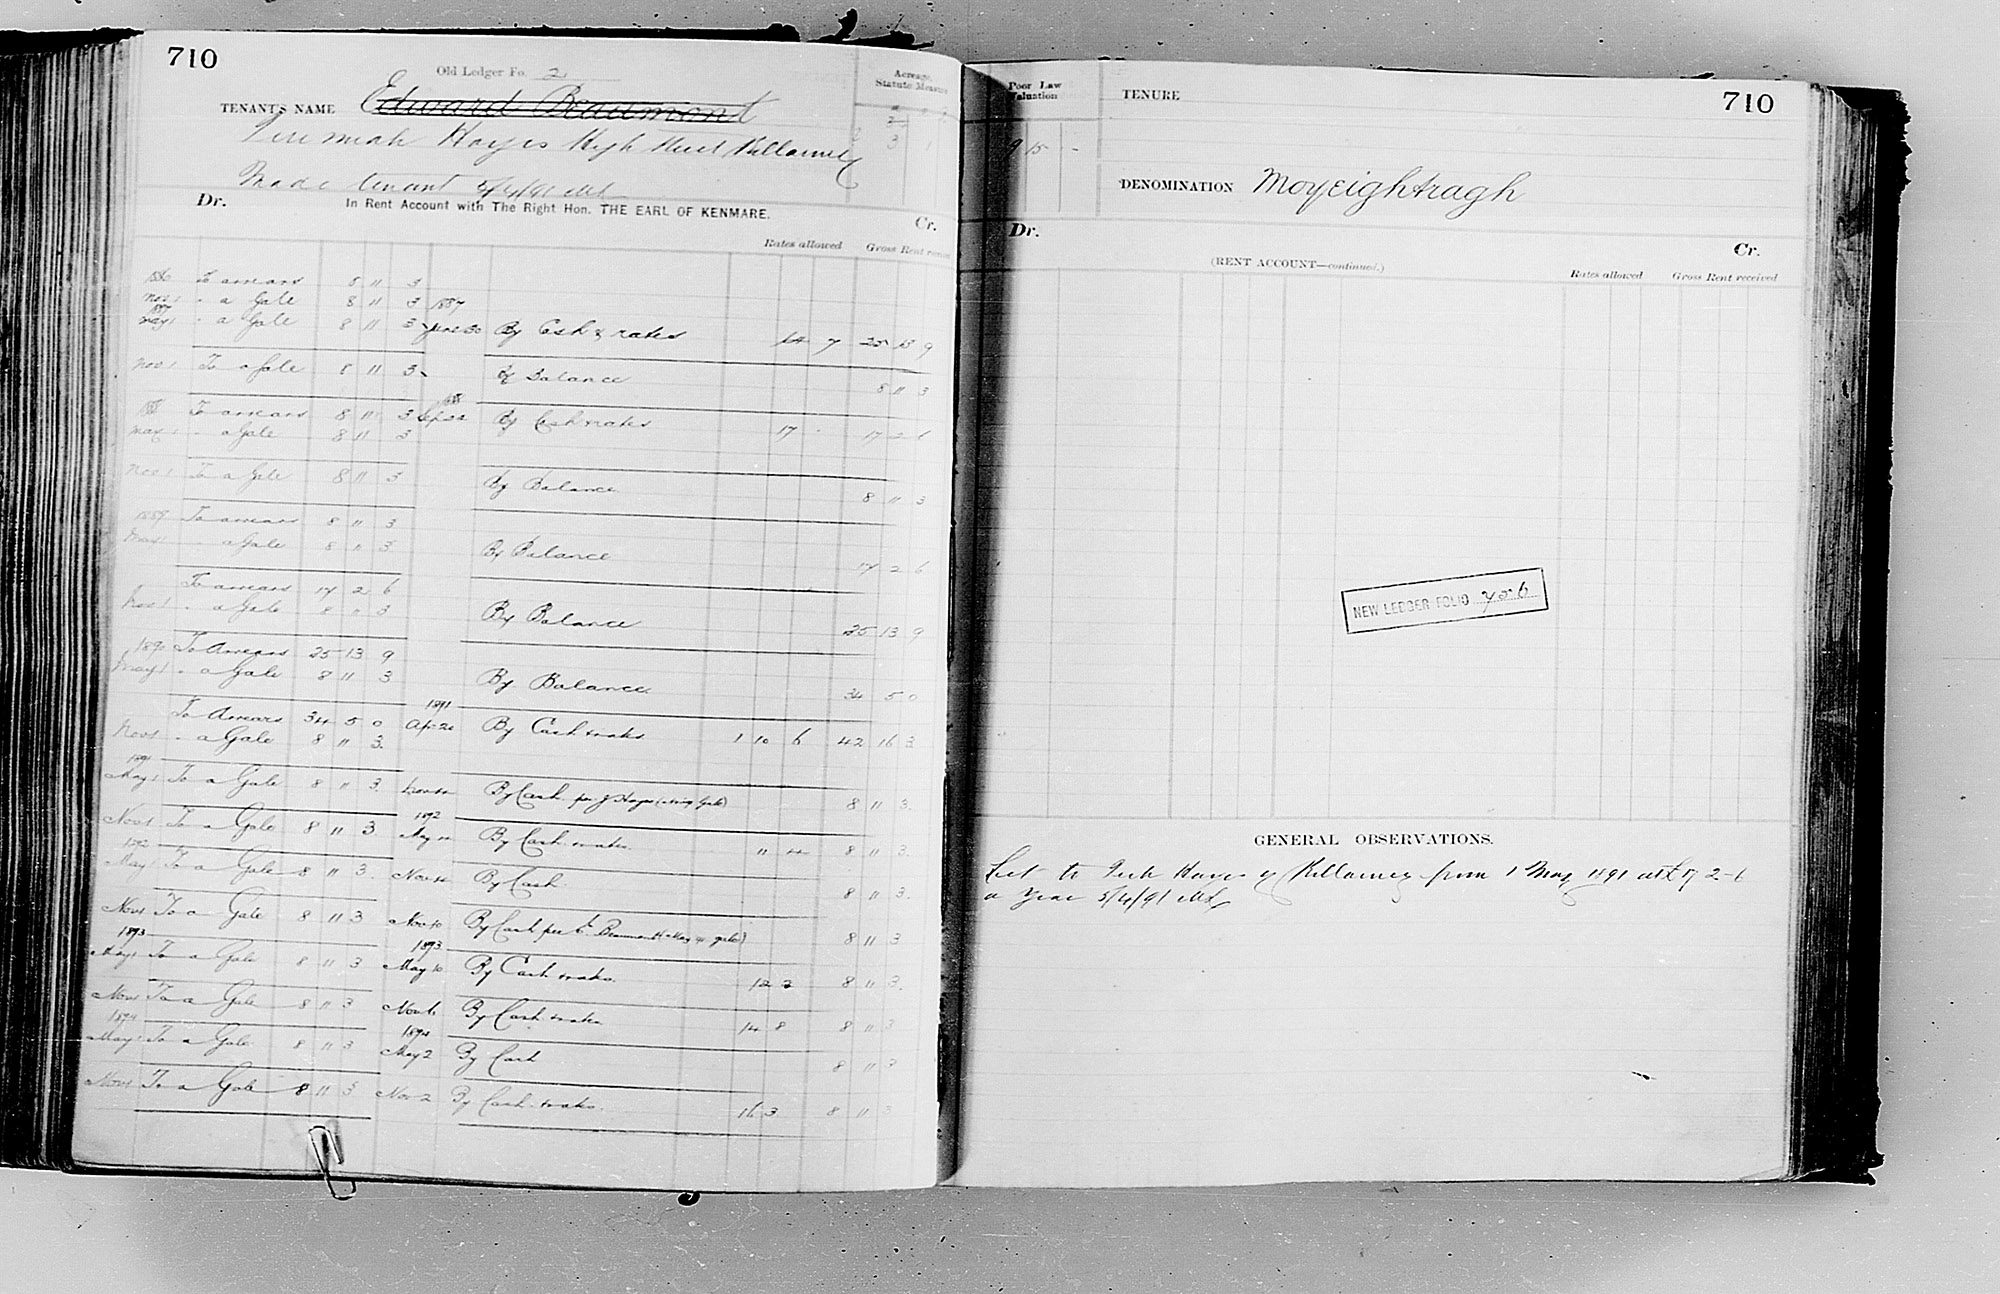 710
Old Ledger Fo. 2
Acreage, Statute Measure
TENANT'S NAME Edward Beaumont
Jeremiah Hayes High Street Killarney
3 1
Made tenant 5/4/91
Dr. In Rent Account with The Right Hon. THE EARL OF KENMARE. Cr.
Rates allowed Gross Rent
1886 To arrears 8 11 3
Nov 1 " a Gale 8 11 3 1887
1887
May 1 " a Gale 8 11 3 June 30 By Cash & rates 14 7 25 13 9
Nov 1 To a Gale 8 11 3 By Balance 8 11 3
1888 To arrears 8 11 3 Sep 22 By Cash & rates 17 - 17 2 6
May 1 " a Gale 8 11 3
Nov 1 To a Gale 8 11 3 By Balance 8 11 3
1889 To arrears 8 11 3
May 1 " a Gale 8 11 3 By Balance 17 2 6
To arrears 17 2 6
Nov 1 " a Gale 8 11 3 By Balance 25 13 9
1890 To Arrears 25 13 9
May 1 " a Gale 8 11 3 By Balance 34 5 0
1891
To Arrears 34 5 0 Apr 20 By Cash & rates 1 10 6 42 16 3
Nov 1 " a Gale 8 11 3
1891
May 1 To a Gale 8 11 3 By Cash per J Hayes 8 11 3
1892
Nov 1 To a Gale 8 11 3 May By Cash & rates 11 4 8 11 3
1892
May 1 To a Gale 8 11 3 Nov By Cash 8 11 3
Nov 1 To a Gale 8 11 3 Nov 10 By Cash per Beaumont 8 11 3
1893 1893
May 1 To a Gale 8 11 3 May 10 By Cash & rates 12 2 8 11 3
Nov 1 To a Gale 8 11 3 Nov 6 By Cash & rates 14 8 8 11 3
1894 1894
May 1 To a Gale 8 11 3 May 2 By Cash 8 11 3
Nov 1 To a Gale 8 11 3 Nov 2 By Cash & rates 16 3 8 11 3
Poor Law Valuation
TENURE
710
9 15 -
DENOMINATION Moyeightragh
Dr. Cr.
(RENT ACCOUNT—continued.) Rates allowed Gross Rent received
NEW LEDGER FOLIO 706
GENERAL OBSERVATIONS.
Let to Hayes of Killarney from 1 May 1891 at £17-2-6
a year 5/4/91